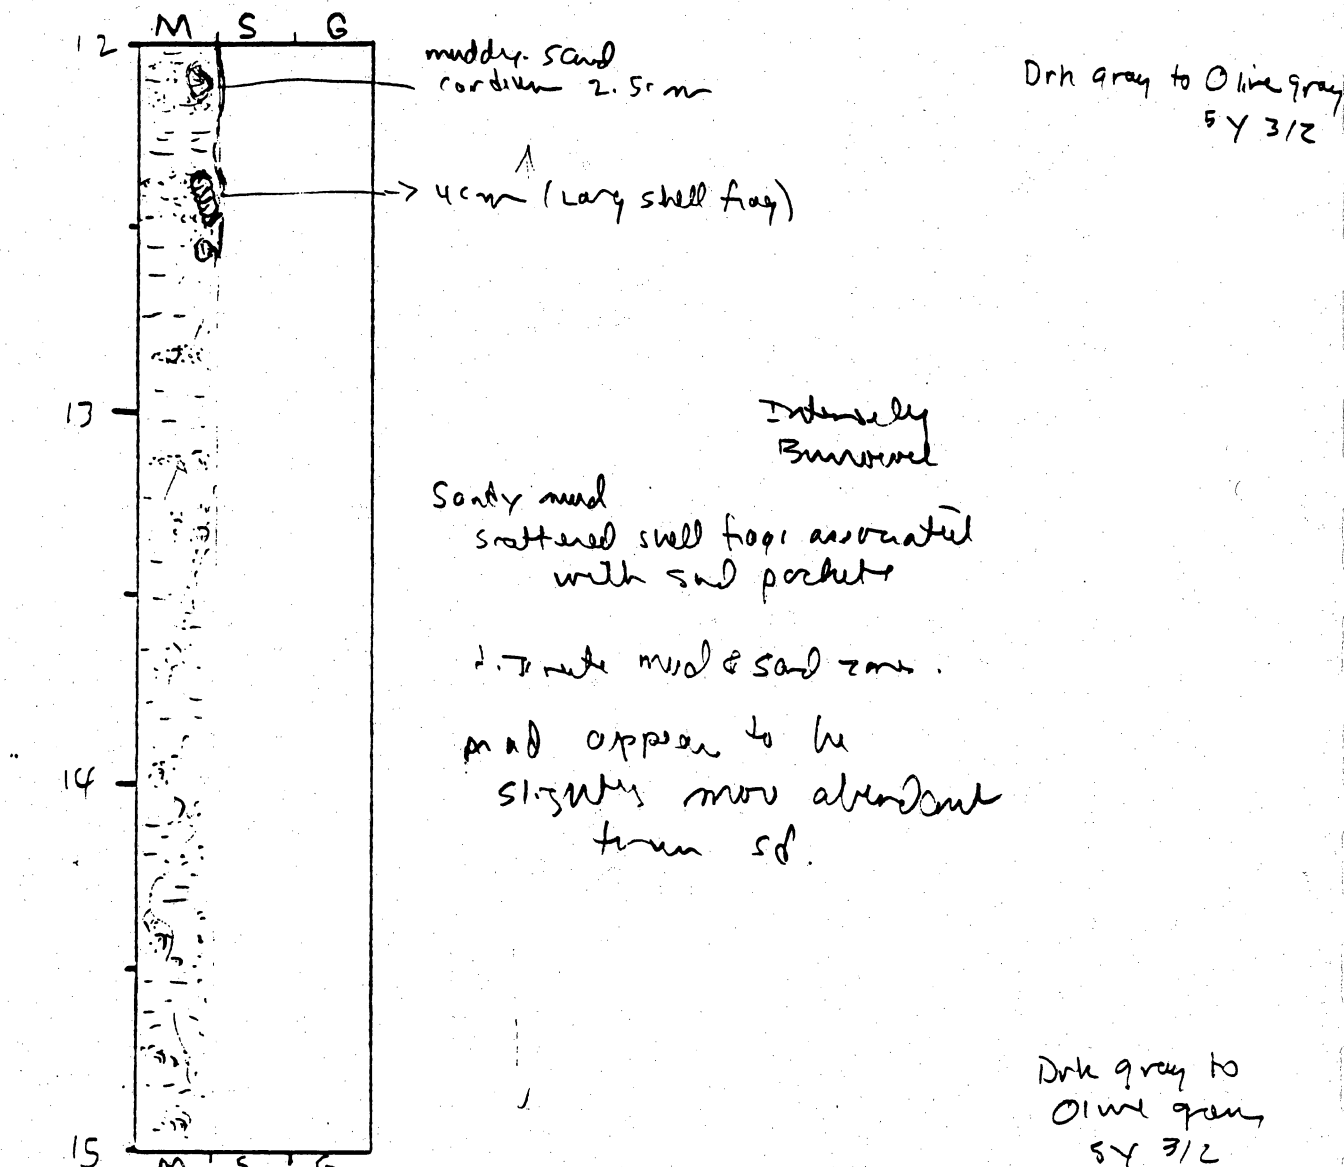 M S G
12
muddy sand
cardium 2.5cm
Drk gray to Olive gray
5Y 3/2
4cm (Larg shell frag)
13
Intensely
Burrowed
Sandy mud
scattered shell frags associated
with sand pockets
mud & sand zones.
mud appear to be
14
slightly more abundant
than sd.
Drk gray to
Olive gray
5Y 3/2
15
M S G